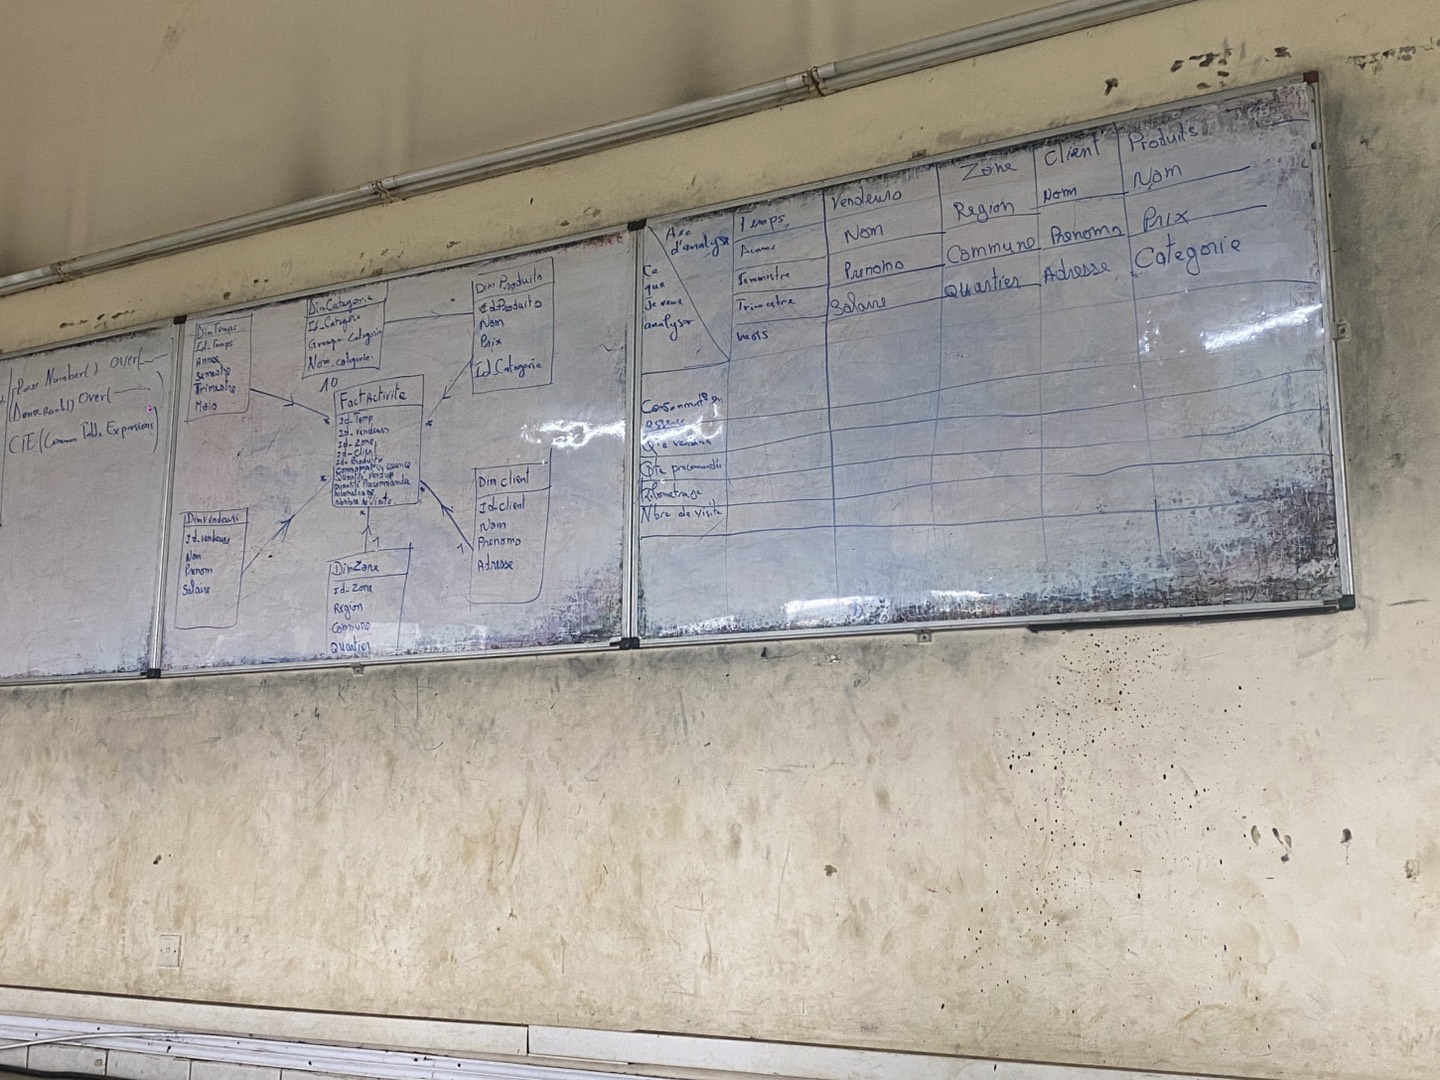 Row Number() Over(
Dense_Rank() Over(
CTE (Common Table Expressions)
DimTemps
Id_Temps
Annee
Semestre
Trimestre
Mois
DimCategorie
Id_Categorie
Groupe_Categorie
Nom_categorie
Dim Produits
Id_Produits
Nom
Prix
Id_Categorie
FactActivite
Id_Temp
Id_Vendeurs
Id_Zone
Id_Client
Id_Produits
Consommation_essence
Quantite Vendue
Quantite Precommande
Kilometrage
Nombre de visite
DimVendeurs
Id_vendeurs
Nom
Prenom
Salaire
DimZone
Id_Zone
Region
Commune
Quartier
Dim client
Id_client
Nom
Prenoms
Adresse
Axe d'analyse
Ce que Je veux analyser
Temps
Annee
Semestre
Trimestre
mois
Vendeurs
Nom
Prenoms
Salaire
Zone
Region
Commune
Quartier
Client
Nom
Prenoms
Adresse
Produits
Nom
Prix
Categorie
Consommat° en essence
Qte vendue
Qte precommandée
Kilometrage
Nbre de visite